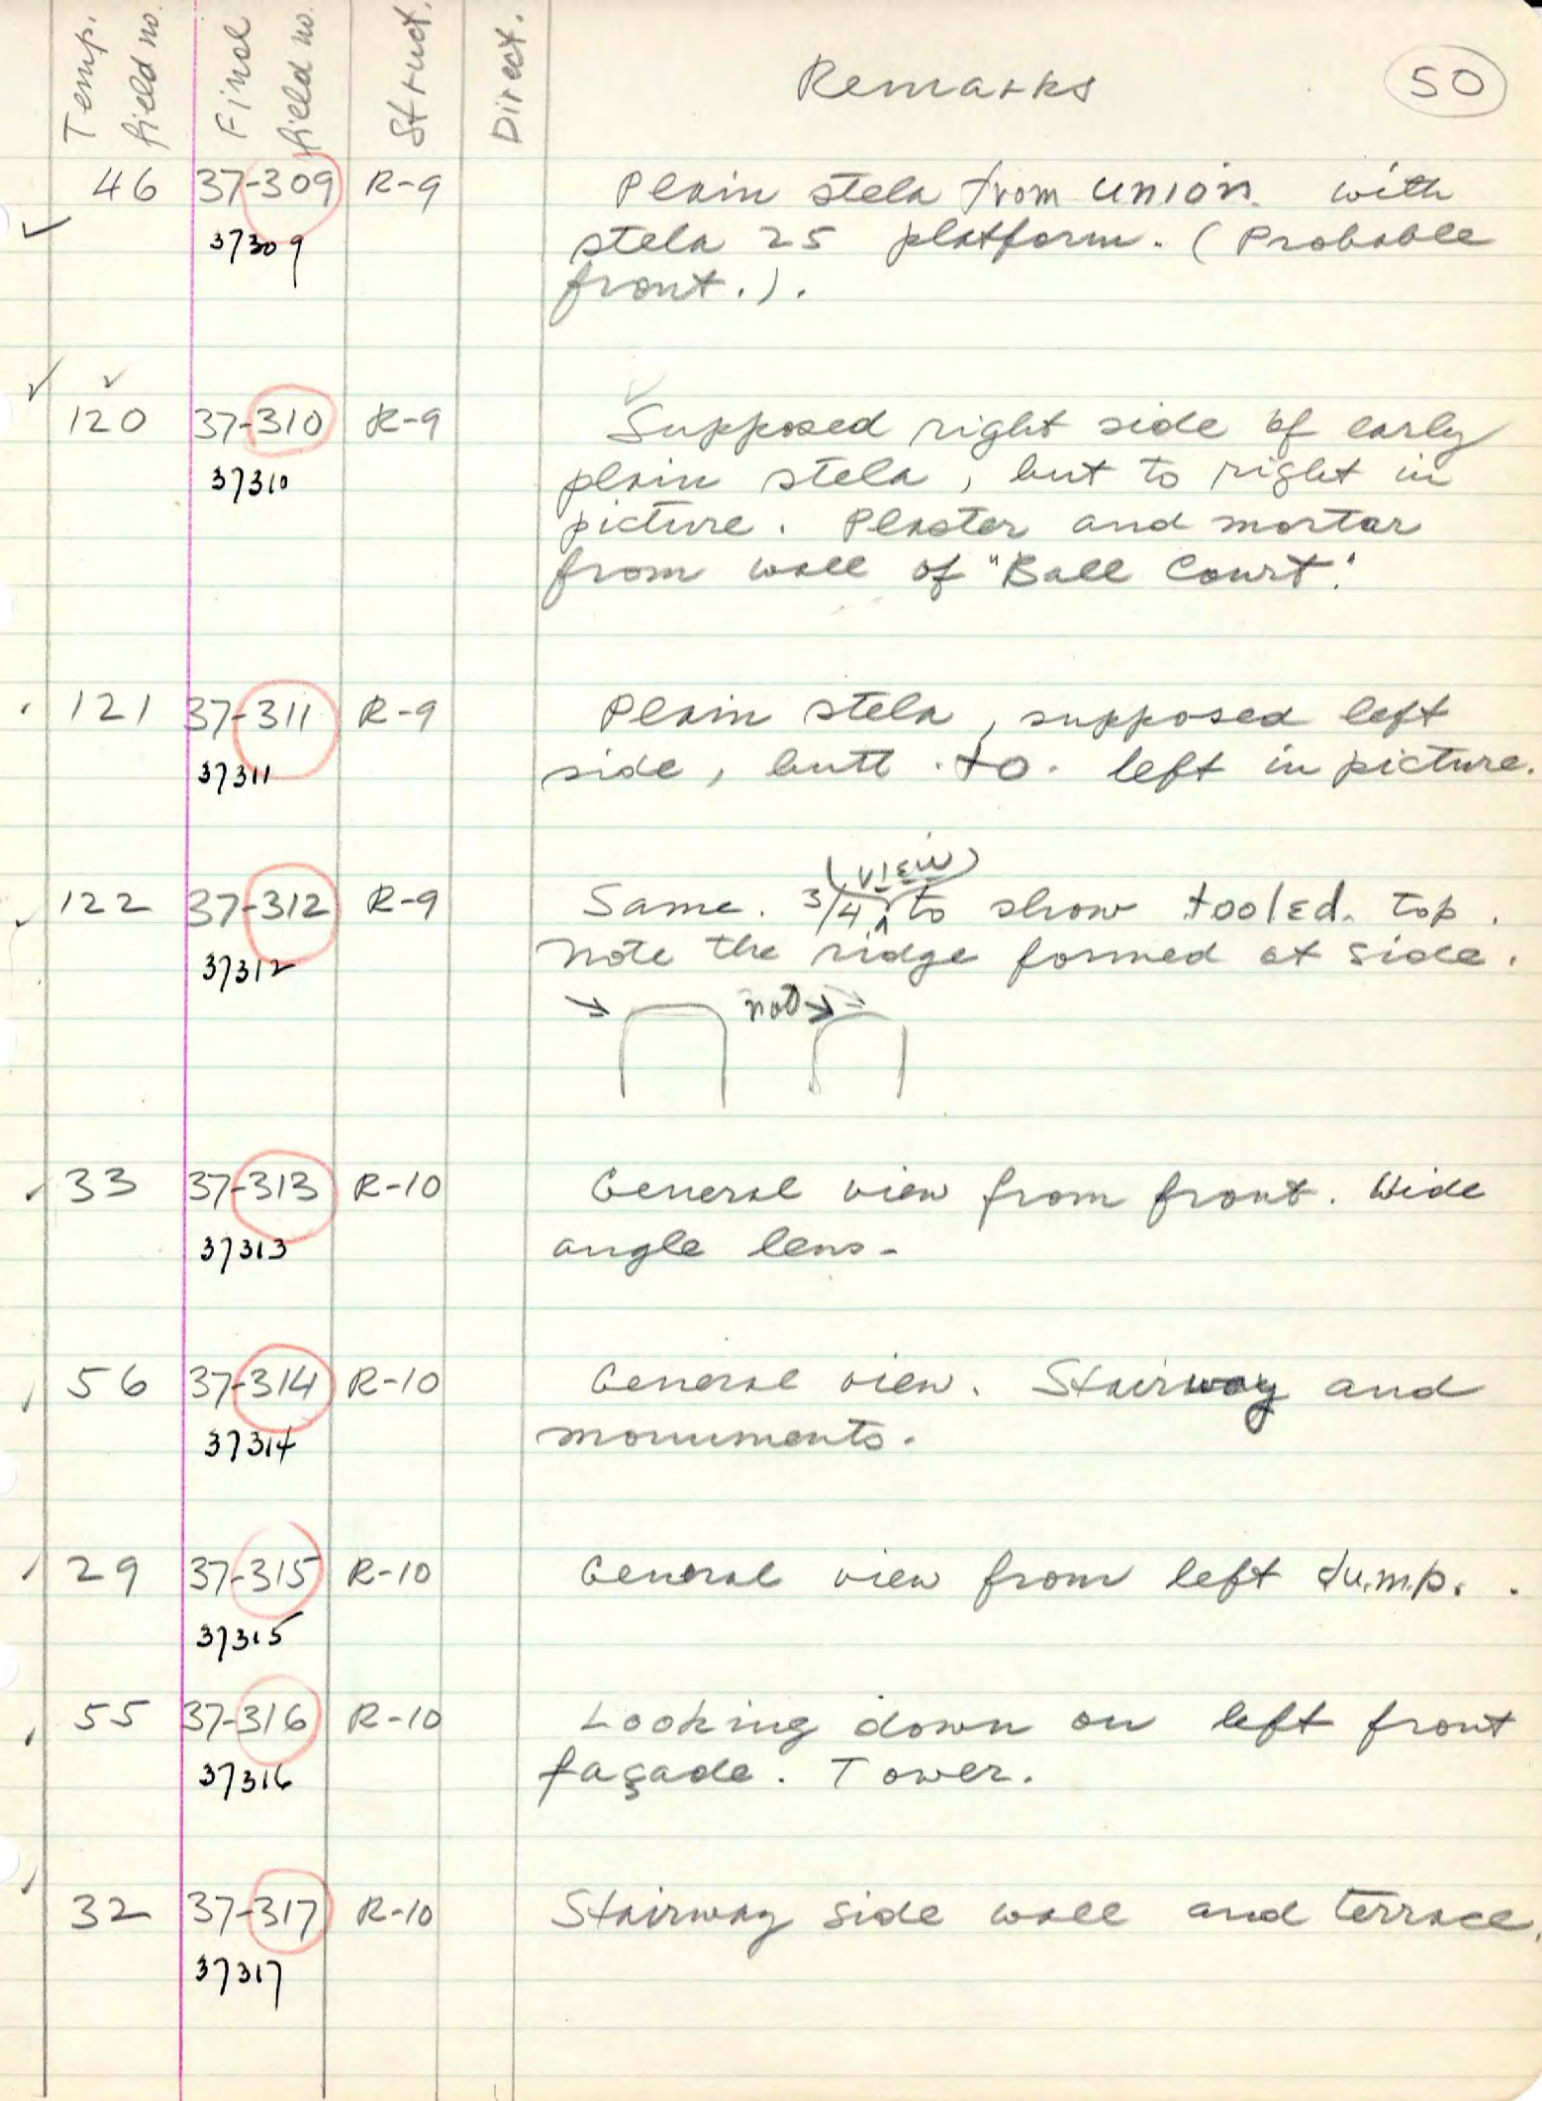 Temp. field no. Final field no. Struct. Direct. Remarks 50
46 37-309 R-9 Plain stela from union with
37309 stela 25 platform. (Probable
front.).
120 37-310 R-9 Supposed right side of early
37310 plain stela, but to right in
picture. Plaster and mortar
from wall of "Ball Court."
121 37-311 R-9 Plain stela, supposed left
37311 side, butt to left in picture.
(view)
122 37-312 R-9 Same. 3/4 ^ to show tooled top.
37312 Note the ridge formed at side.
not
33 37-313 R-10 General view from front. Wide
37313 angle lens.
56 37-314 R-10 General view. Stairway and
37314 monuments.
29 37-315 R-10 General view from left dump.
37315
55 37-316 R-10 Looking down on left front
37316 façade. Tower.
32 37-317 R-10 Stairway side wall and terrace.
37317